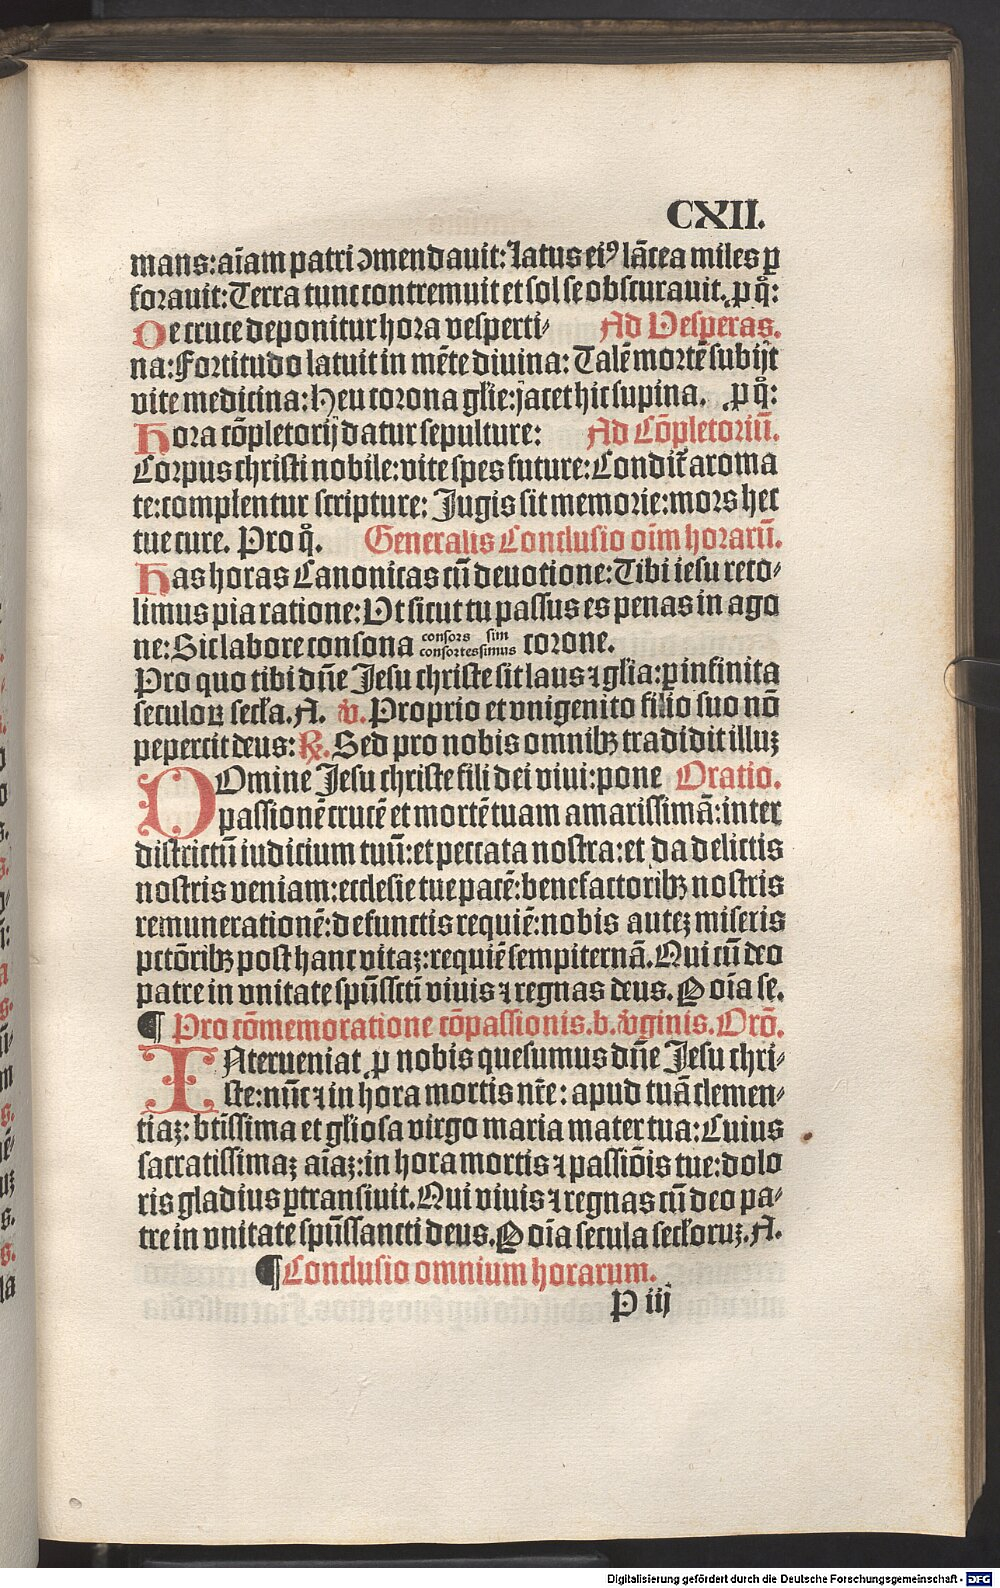 CXII.
mans: aīam patri ꝯmendauit: latus eiꝰ lācea miles ꝑ
forauit: Terra tunc contremuit et sol se obscurauit. ꝓ qͦ:
De cruce deponitur hora vesperti⸗ Ad Vesperas.
na: Fortitudo latuit in mēte diuina: Talē mortē subijt
vite medicina: Heu corona glīe: jacet hic supina. ꝓ qͦ:
Hora cōpletorij datur sepulture: Ad Cōpletoriū.
Corpus christi nobile: vite spes future: Condit᷑ aroma
te: complentur scripture: Jugis sit memorie: mors hec
tue cure. Pro qͦ. Generalis Conclusio oīm horarū.
Has horas Canonicas cū deuotione: Tibi iesu reco⸗
limus pia ratione: Vt sicut tu passus es penas in ago
ne: Sic labore consona consors sim corone.
consortes simus
Pro quo tibi dn̄e Jesu christe sit laus ⁊ gl̄ia: ꝑ infinita
seculoꝝ secl̄a. A. v̄. Proprio et vnigenito filio suo nō
pepercit deus: ℞. Sed pro nobis omnibꝫ tradidit illuꝫ
DOmine Jesu christe fili dei viui: pone Oratio.
passionē crucē et mortē tuam amarissimā: inter
districtū iudicium tuū: et peccata nostra: et da delictis
nostris veniam: ecclesie tue pacē: benefactoribꝫ nostris
remunerationē: defunctis requiē: nobis auteꝫ miseris
pctōribꝫ post hanc vitaꝫ: requiē sempiternā. Qui cū deo
patre in vnitate spūssctī viuis ⁊ regnas deus. P oīa se.
¶ Pro cōmemoratione cōpassionis. b. v̄ginis. Orō.
INterueniat ꝓ nobis quesumus dn̄e Jesu chri⸗
ste: nūc ⁊ in hora mortis nr̄e: apud tuā clemen⸗
tiaꝫ: btīssima et gl̄iosa virgo maria mater tua: Cuius
sacratissimaꝫ aīaꝫ: in hora mortis ⁊ passiōis tue: dolo
ris gladius ꝑtransiuit. Qui viuis ⁊ regnas cū deo pa⸗
tre in vnitate spūssancti deus. P oīa secula secl̄oruꝫ. A.
¶ Conclusio omnium horarum.
P iij
Digitalisierung gefördert durch die Deutsche Forschungsgemeinschaft - DFG